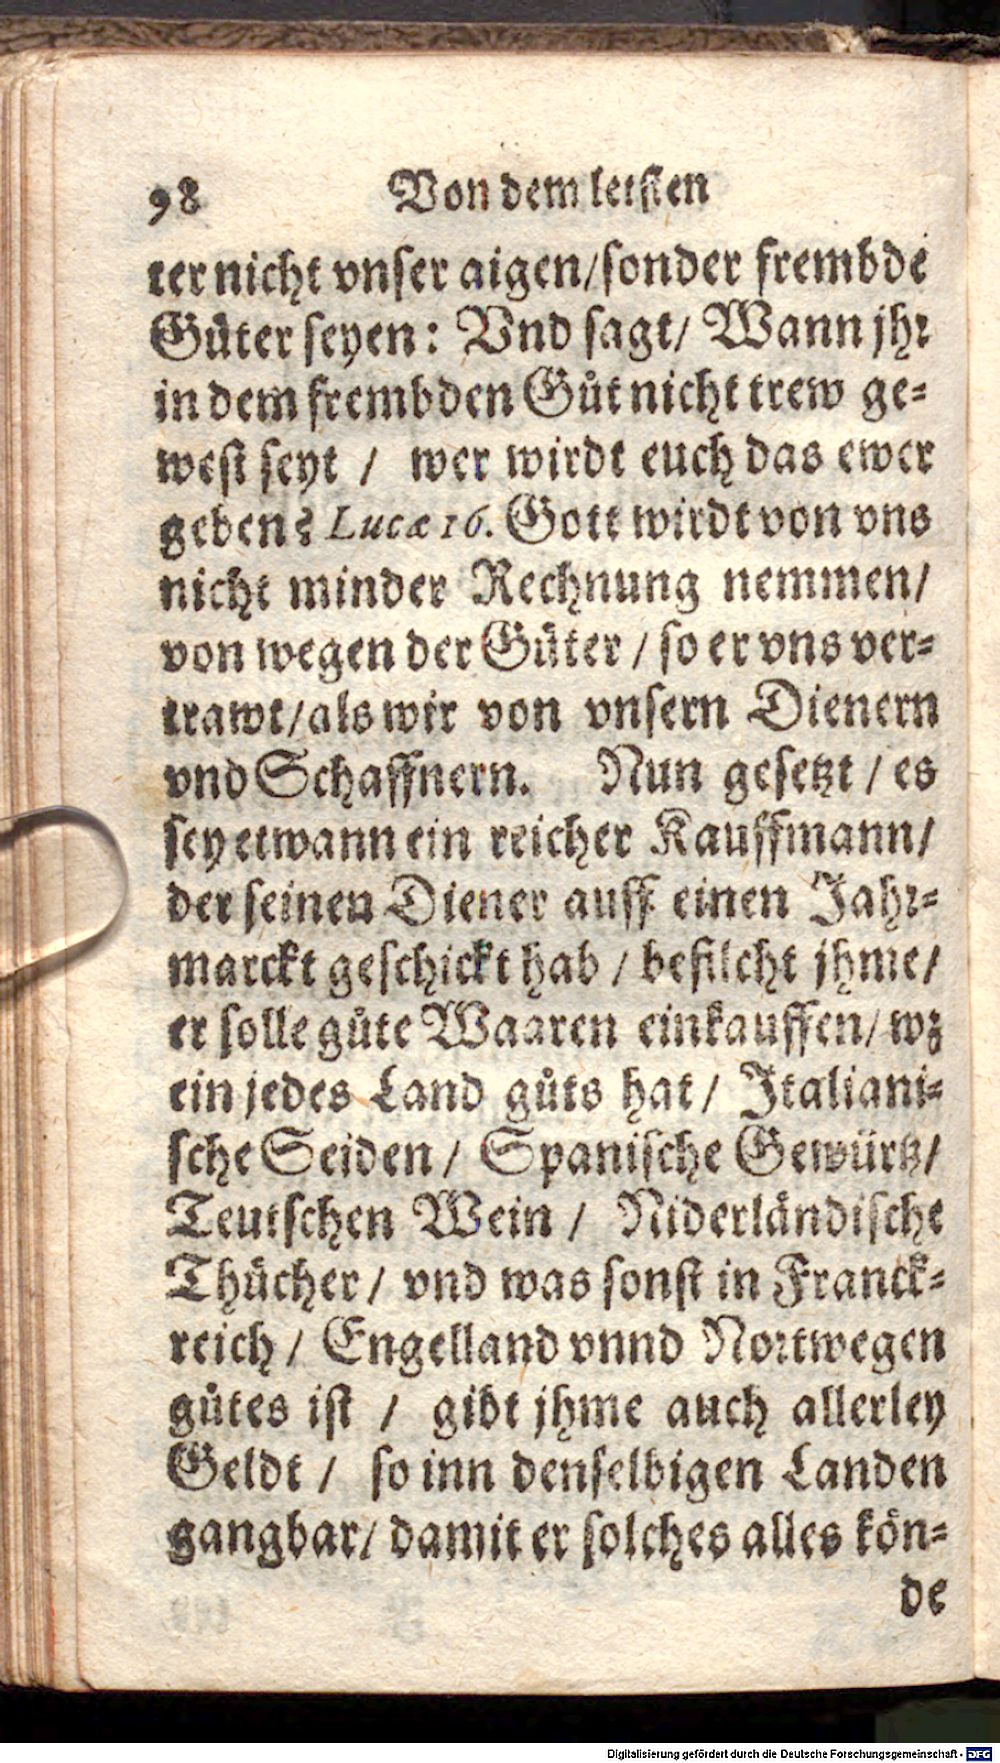 98 Von dem letsten
ter nicht vnser aigen/sonder frembde
Guͤter seyen: Vnd sagt/ Wann jhr
in dem frembden Guͦt nicht trew ge-
west seyt / wer wirdt euch das ewer
geben? Lucæ 16. Gott wirdt von vns
nicht minder Rechnung nemmen/
von wegen der Guͤter / so er vns ver-
trawt/als wir von vnsern Dienern
vnd Schaffnern. Nun gesetzt / es
sey etwann ein reicher Kauffmann/
der seinen Diener auff einen Jahr-
marckt geschickt hab / befilcht jhme/
er solle guͦte Waaren einkauffen/ wz
ein jedes Land guͦts hat / Italiani-
sche Seiden / Spanische Gewürtz/
Teutschen Wein / Niderländische
Thuͤcher / vnd was sonst in Franck-
reich / Engelland vnnd Nortwegen
guͦtes ist / gibt jhme auch allerley
Geldt / so inn denselbigen Landen
gangbar/ damit er solches alles kön-
de
Digitalisierung gefördert durch die Deutsche Forschungsgemeinschaft - DFG